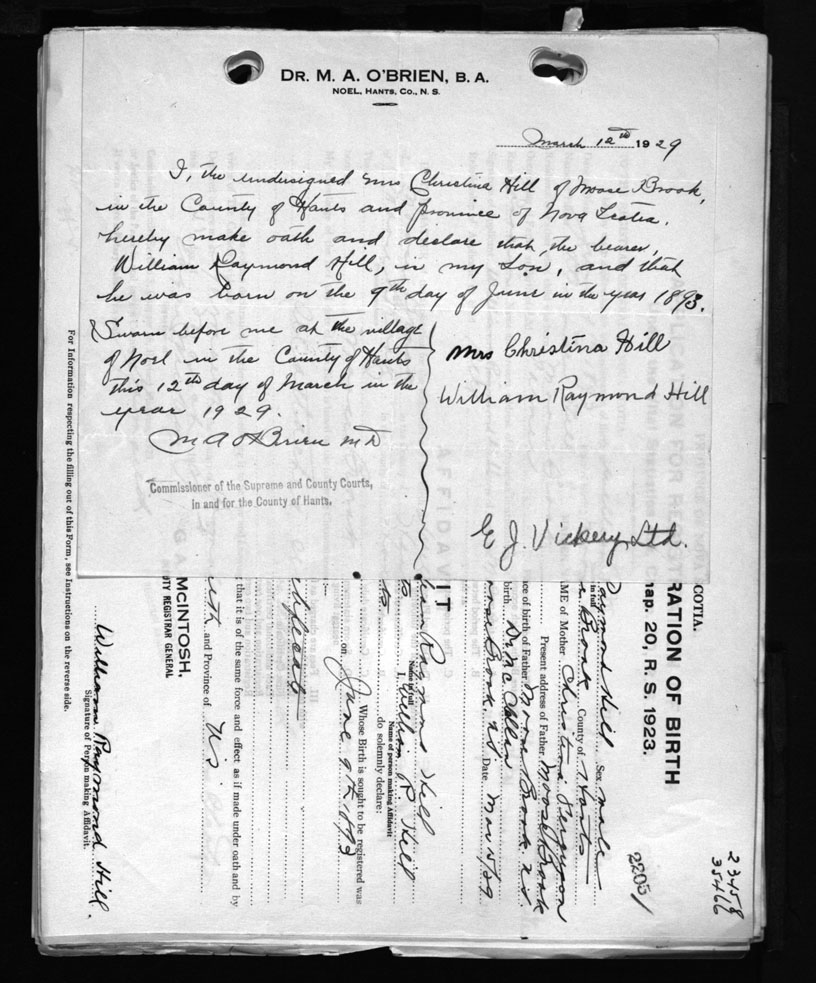 DR. M. A. O'BRIEN, B. A.
NOEL, HANTS, CO., N. S.
March 12th 1929
I, the undersigned Mrs Christina Hill of Moose Brook,
in the County of Hants and province of Nova Scotia,
hereby make oath and declare that, the bearer,
William Raymond Hill, is my son, and that
he was born on the 9th day of June in the year 1893.
Sworn before me at the village
of Noel in the County of Hants
this 12th day of March in the
year 1929.
M A O'Brien MD
Commissioner of the Supreme and County Courts,
in and for the County of Hants.
Mrs Christina Hill
William Raymond Hill
E J. Vickery Ltd.
For Information respecting the filling out of this Form, see Instructions on the reverse side.
William Raymond Hill.
Signature of Person making Affidavit.
MCINTOSH.
REGISTRAR GENERAL
and Province of N S
that it is of the same force and effect as if made under oath and by
on June 9th 1893
Whose Birth is sought to be registered was
do solemnly declare:
Name of person making Affidavit
I, William R. Hill
Name in full
Raymond Hill
IT
birth Dr Mc
Moose Brook, N.S. Date
ce of birth of Father Moose Brook N.S.
Present address of Father Moose Brook
AME of Mother Christina Ferguson
Brook County of Hants
in full
aymond Hill Sex male
hap. 20, R. S. 1923.
RATION OF BIRTH
COTIA.
2205/
23458
35466